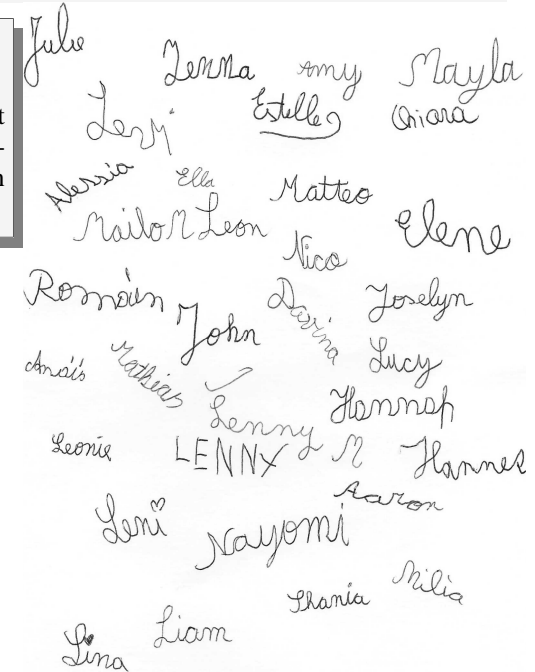 Julie
Jenna Amy Mayla
Estelle Chiara
Alessia Ella Matteo
Mailo M Leon Elene
Nico
Romain John Davina Joselyn
Anaïs Mathias Lucy
Lenny Hannah
Leonie LENNY M Hannes
Aaron
Leni Nayomi
Shania Milia
Liam
Lina